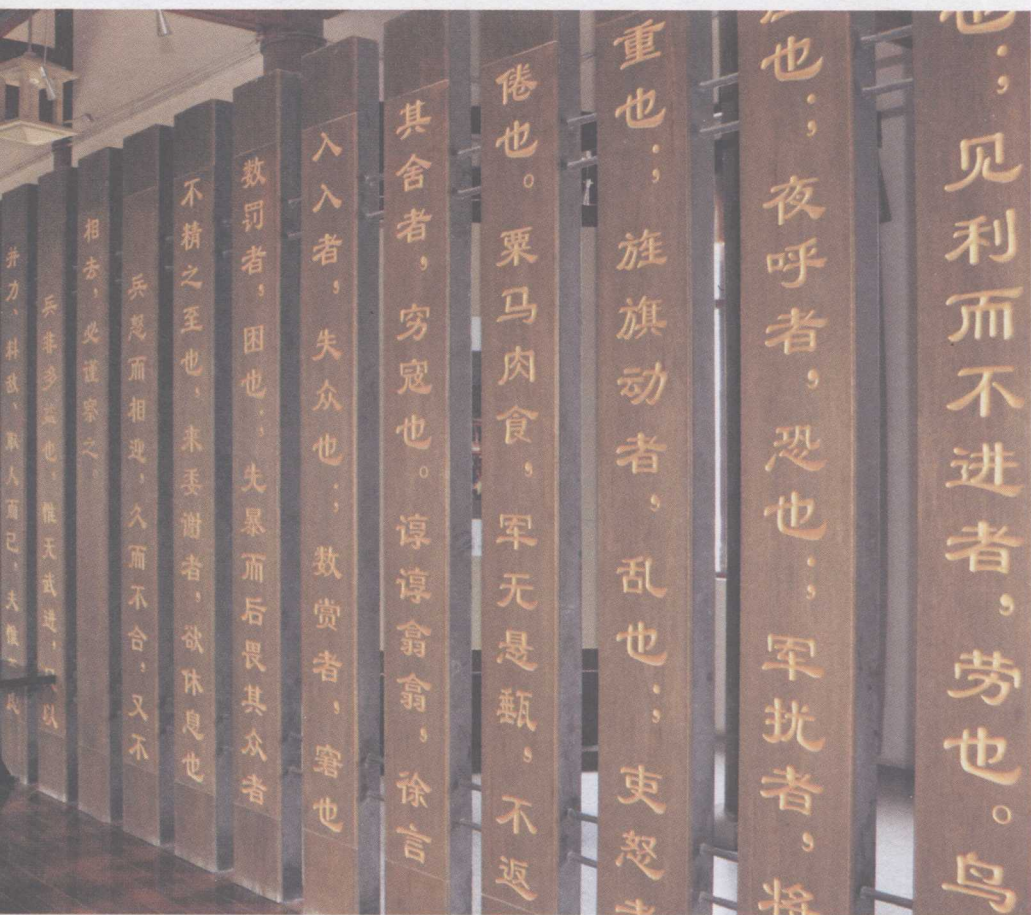 也；见利而不进者，劳也。鸟
也；夜呼者，恐也；军扰者，将
重也；旌旗动者，乱也；吏怒者
倦也。粟马肉食，军无悬甀，不返
其舍者，穷寇也。谆谆翕翕，徐言
入入者，失众也；数赏者，窘也
数罚者，困也；先暴而后畏其众者
不精之至也，来委谢者，欲休息也
兵怒而相迎，久而不合，又不
相去，必谨察之。
兵非多益也，惟无武进，以
并力、料敌、取人而已，夫惟